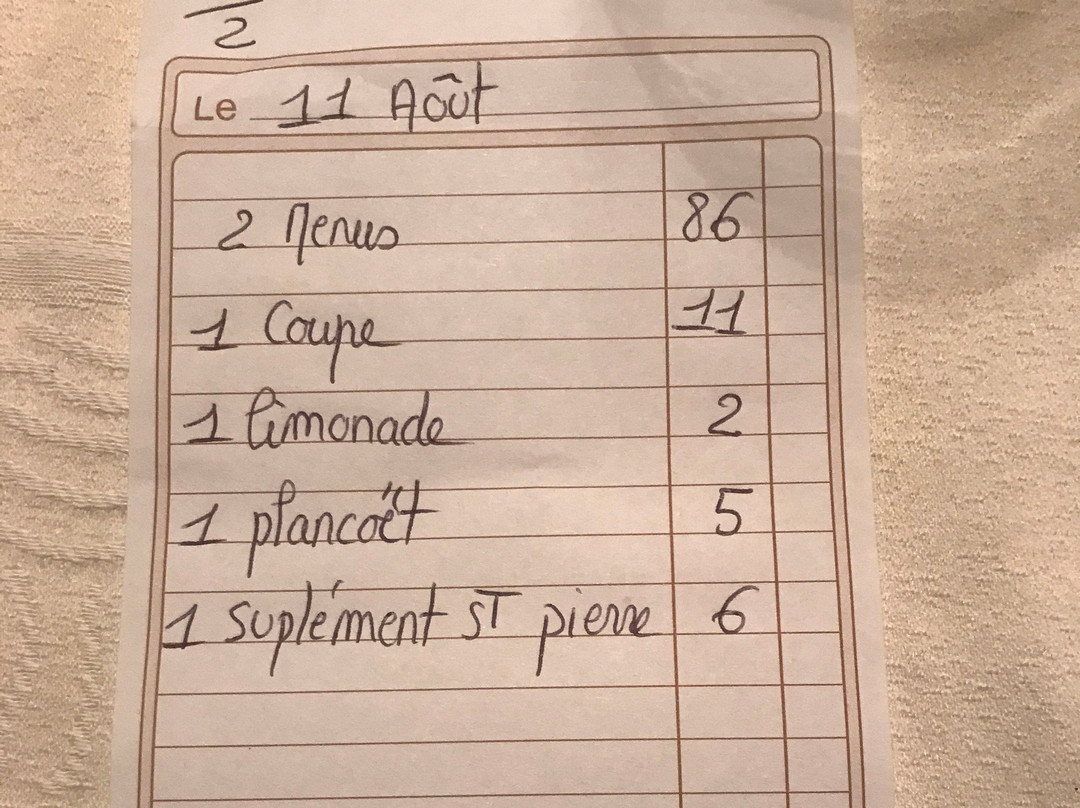 2
Le 11 Août
2 Menus 86
1 Coupe 11
1 limonade 2
1 plancoët 5
1 suplément ST pierre 6